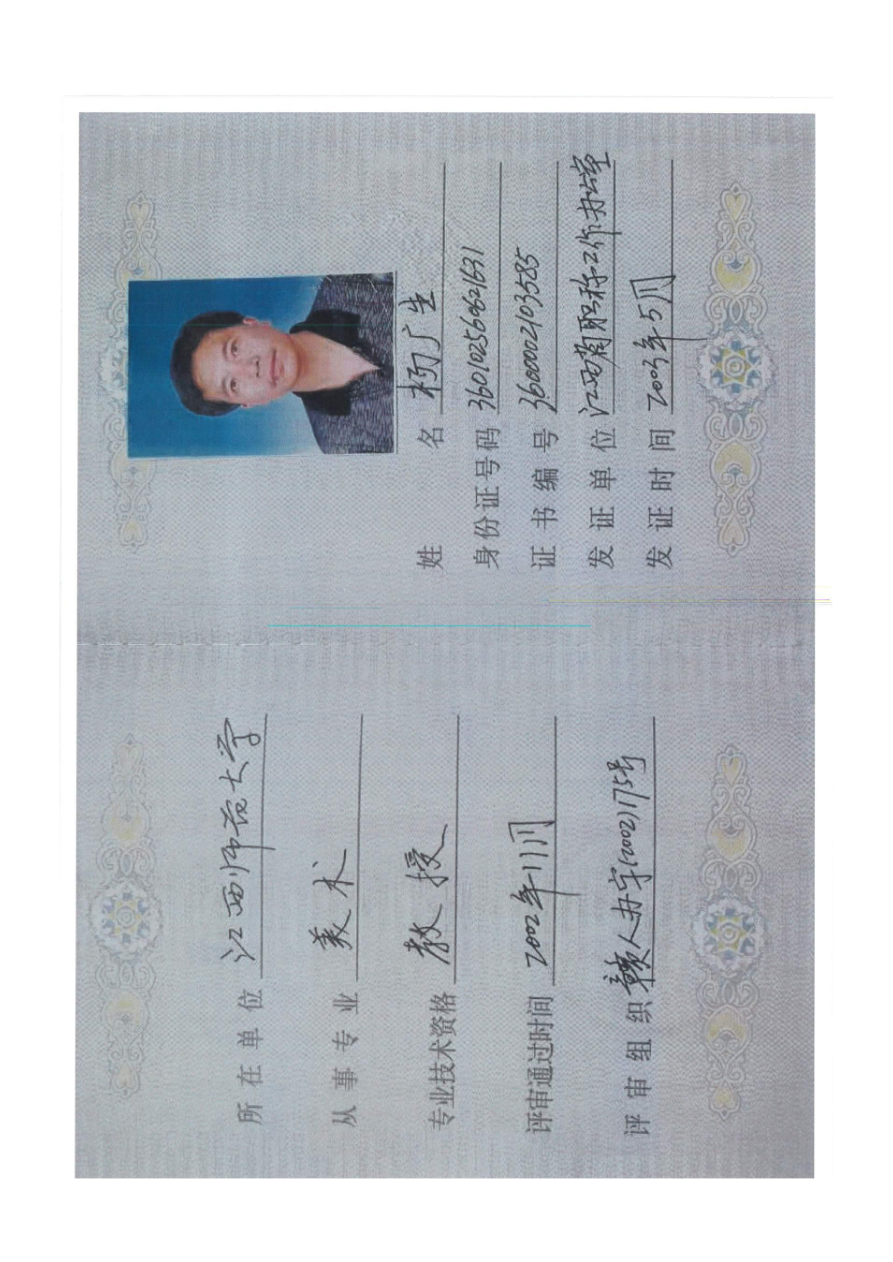 所在单位 江西师范大学
从事专业 美术
专业技术资格 教授
评审通过时间 2002年11月
评审组织 赣人办字(2002)175号
姓名 杨广生
身份证号码 360102560621631
证书编号 3600002103585
发证单位 江西省职称工作办公室
发证时间 2003年5月